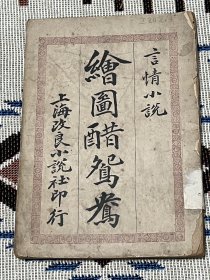 言情小說
繪圖醋鴛鴦
上海改良小說社印行